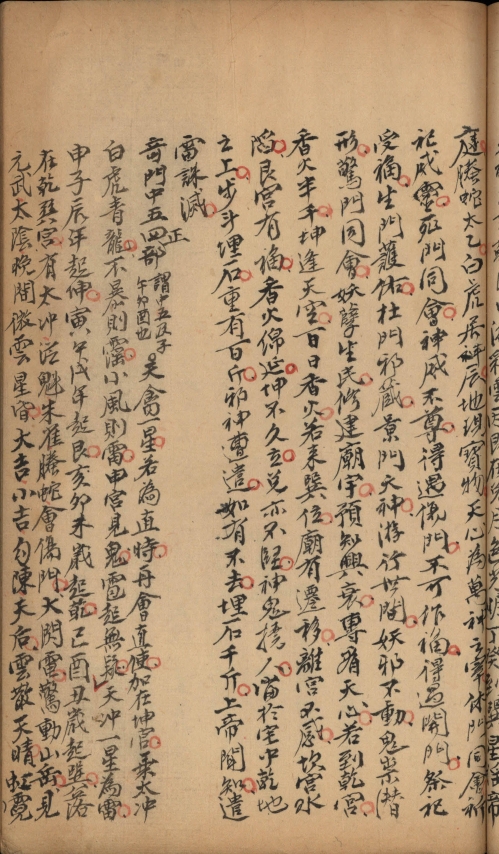 庭騰蛇太乙白虎居神辰地珥寶物天心為萬神主宰休門同會祈
祀威靈死門同會神威不尊得遇傷門不可作福得遇開門祭祀
受福生門護佑杜門邪藏景門大神游行世間妖邪不動鬼祟潛
形驚門同會妖孽生民修建廟宇預知興衰專看天心若到乾宮
香火半千坤逢天空百日香火若来巽位廟有遷移離宮不感坎宮水
陷艮宮有福香火綿延坤不久立兌亦不歸神鬼擾人留於宅中乾地
之上步斗埋石重有百斤邪神遭遣如有不去埋石千斤上帝聞知遣
雷誅滅
奇門中五四部正謂中五及子午卯酉也天禽一星若為直時再會直使加在坤宮乘太冲
白虎青龍不暴則霪小風則雷甲宮見鬼雹起無疑天冲一星為雷
申子辰年起伸寅午戌年起艮亥卯未歲起乾巳酉丑歲起巽落
在乾巽宮有太冲從魁朱雀騰蛇會傷門大閃電驚動山岳見
元武太陰晚間微雲星宿大吉小吉勾陳天后雲散天晴虹霓